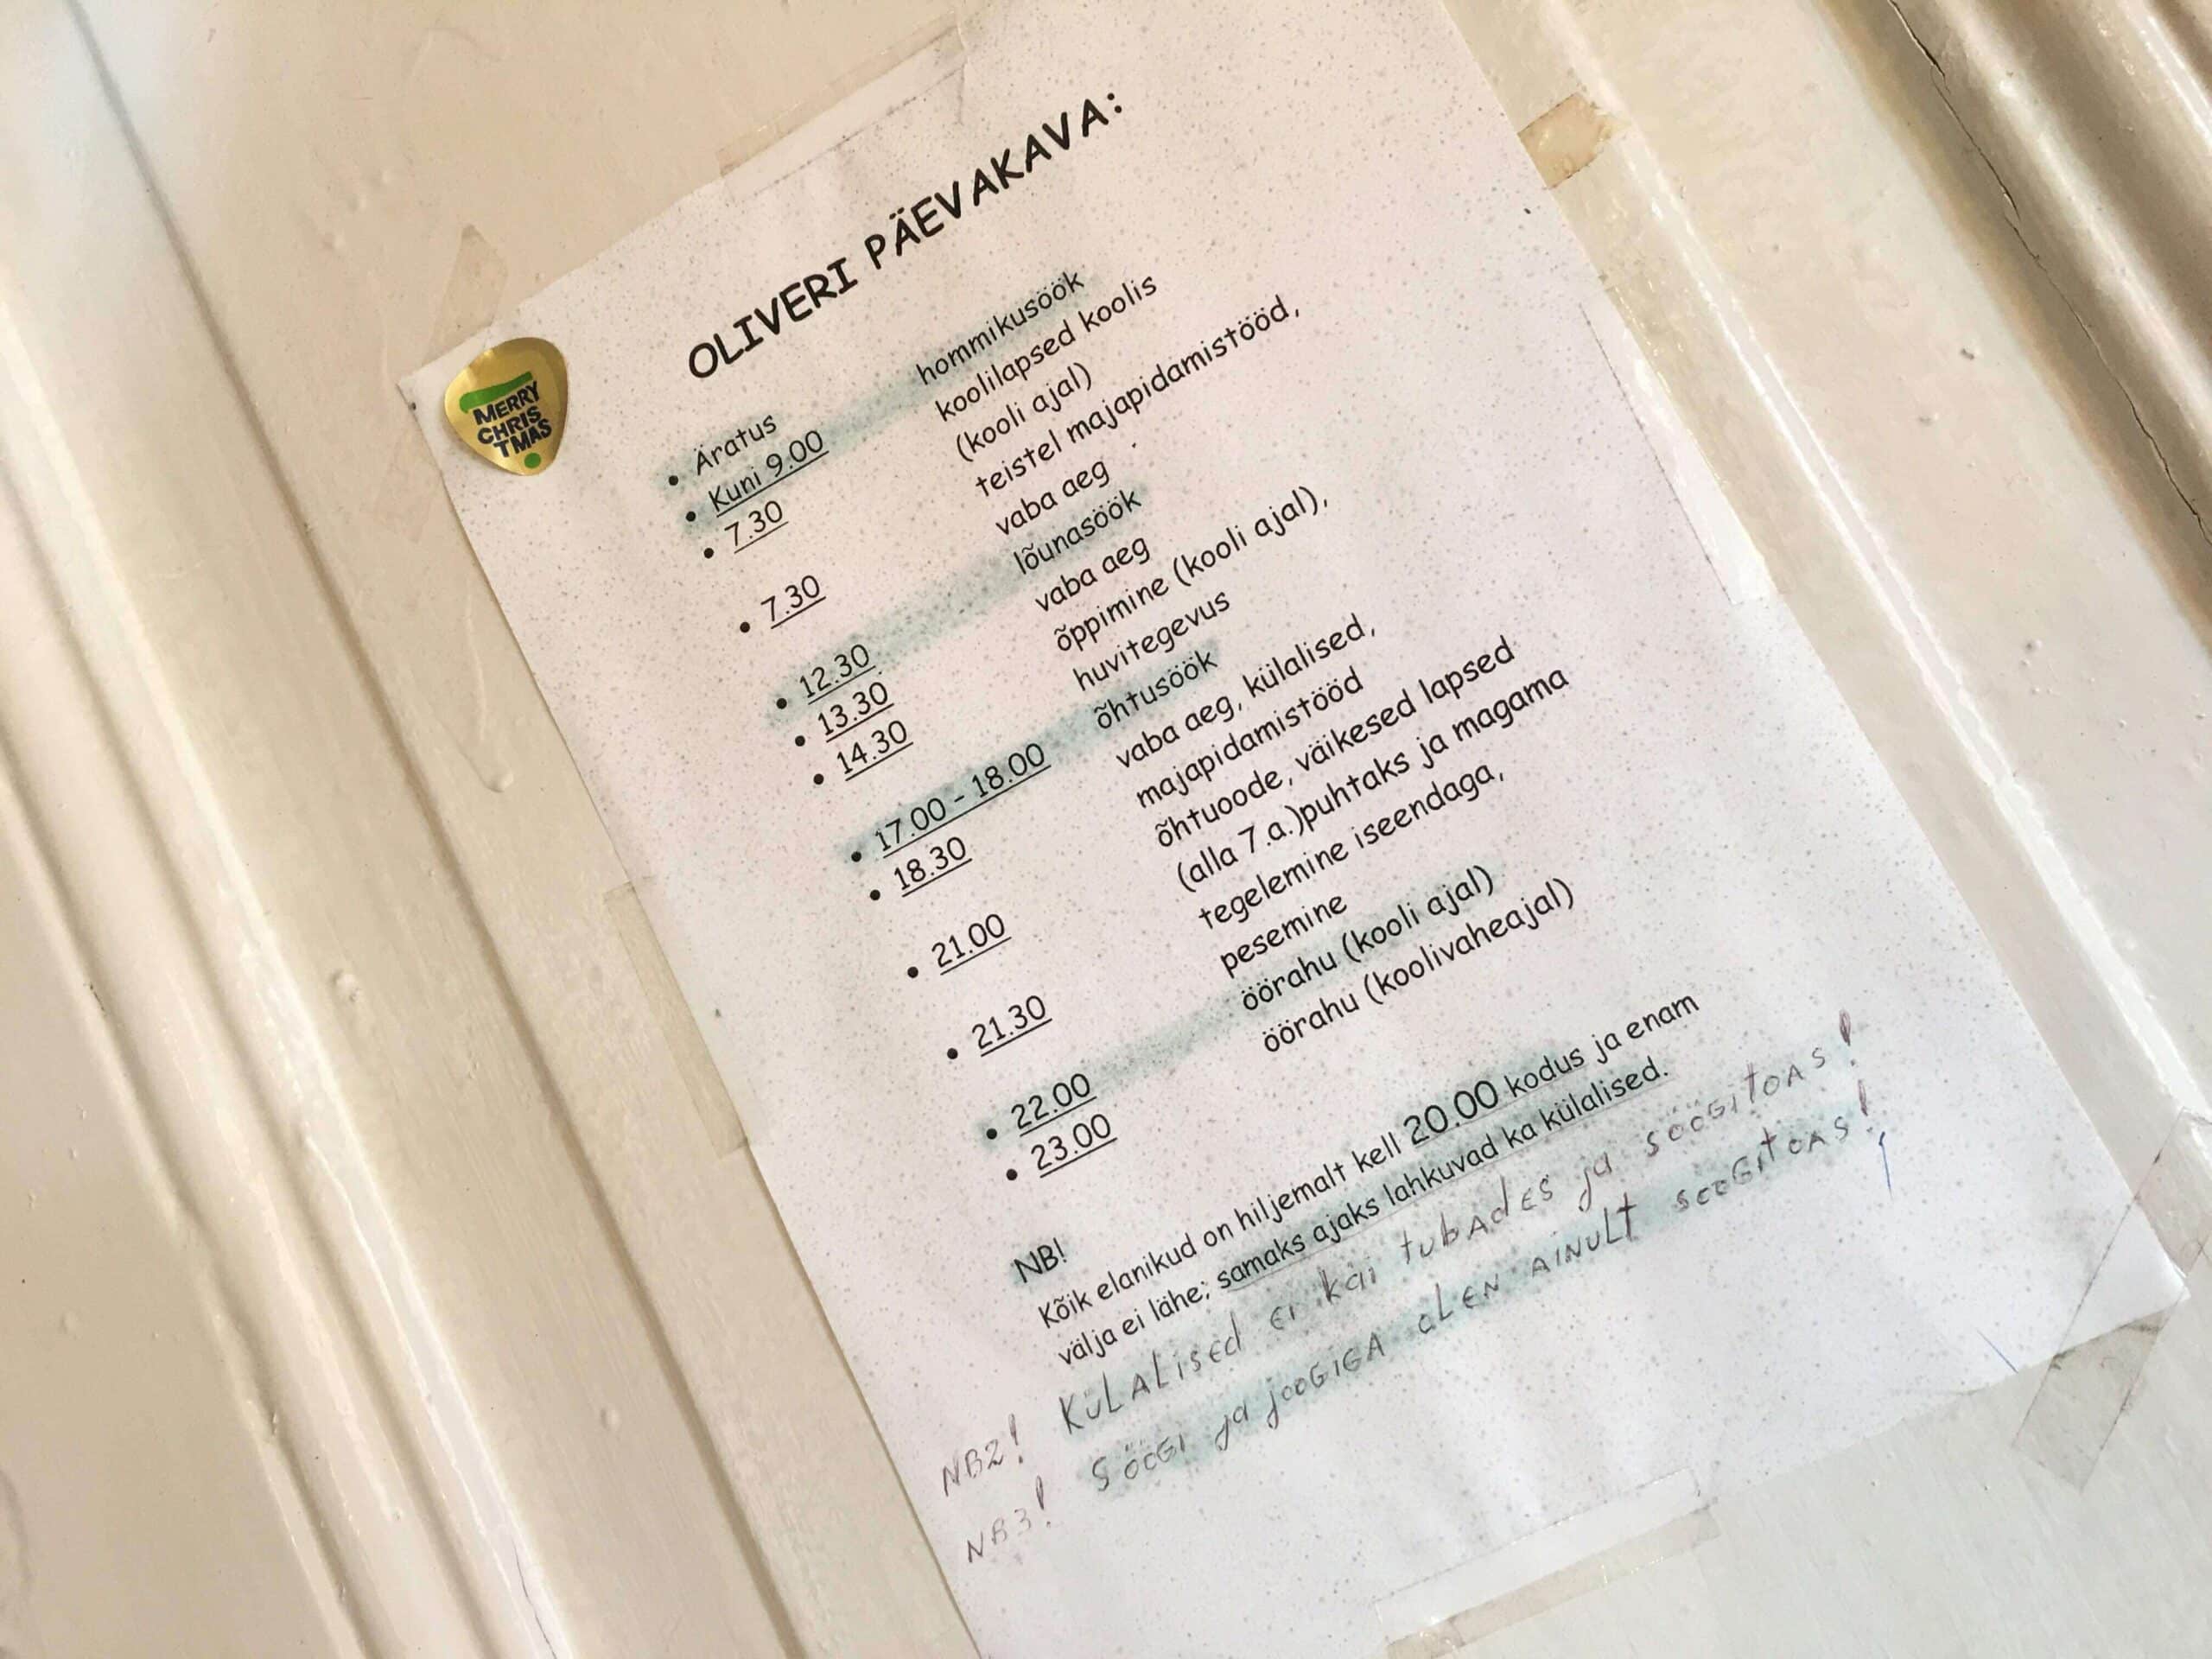 MERRY
CHRIS
TMAS
OLIVERI PÄEVAKAVA:
• Äratus
• Kuni 9.00 hommikusöök
• 7.30 koolilapsed koolis
(kooli ajal)
• 7.30 teistel majapidamistööd,
vaba aeg
• 12.30 lõunasöök
• 13.30 vaba aeg
• 14.30 õppimine (kooli ajal),
huvitegevus
• 17.00 - 18.00 õhtusöök
• 18.30 vaba aeg, külalised,
majapidamistööd
• 21.00 õhtuoode, väikesed lapsed
(alla 7.a.)puhtaks ja magama
• 21.30 tegelemine iseendaga,
pesemine
• 22.00 öörahu (kooli ajal)
• 23.00 öörahu (koolivaheajal)
NB!
Kõik elanikud on hiljemalt kell 20.00 kodus ja enam
välja ei lähe; samaks ajaks lahkuvad ka külalised.
NB2! KÜLALISED EI KÄI TUBADES JA SÖÖGITOAS!
NB3! SÖÖGI JA JOOGIGA OLEN AINULT SÖÖGITOAS!